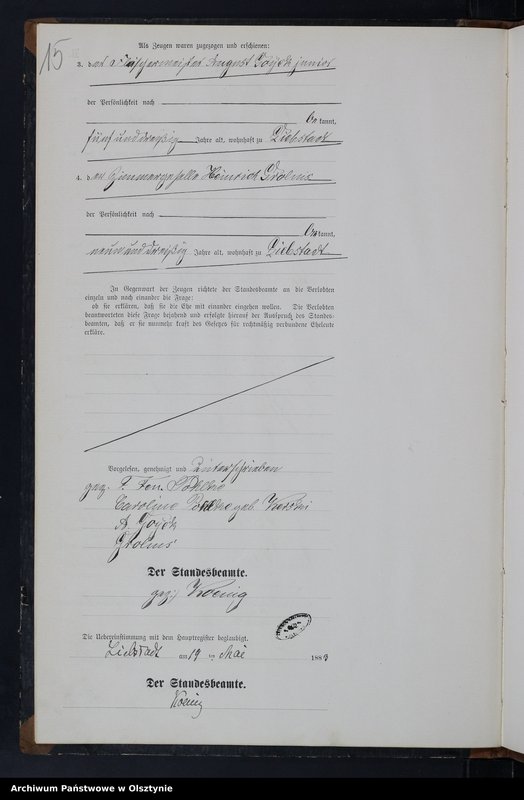 15
Als Zeugen waren zugezogen und erschienen:
3. der Tischlermeister August Goyck junior
der Persönlichkeit nach
bekannt,
fünf und dreißig Jahre alt, wohnhaft zu Liebstadt
4. der Zimmergeselle Heinrich Grolms
der Persönlichkeit nach
bekannt,
neun und dreißig Jahre alt, wohnhaft zu Liebstadt
In Gegenwart der Zeugen richtete der Standesbeamte an die Verlobten
einzeln und nach einander die Frage:
ob sie erklären, daß sie die Ehe mit einander eingehen wollen. Die Verlobten
beantworteten diese Frage bejahend und erfolgte hierauf der Ausspruch des Standes-
beamten, daß er sie nunmehr kraft des Gesetzes für rechtmäßig verbundene Eheleute
erkläre.
Vorgelesen, genehmigt und unterschrieben
gez.
Caroline geb.
A. Goyck
Grolms
Der Standesbeamte.
gez.) Koenig
Die Uebereinstimmung mit dem Hauptregister beglaubigt.
Liebstadt am 19 ten Mai 188
Der Standesbeamte.
Koenig
Archiwum Państwowe w Olsztynie